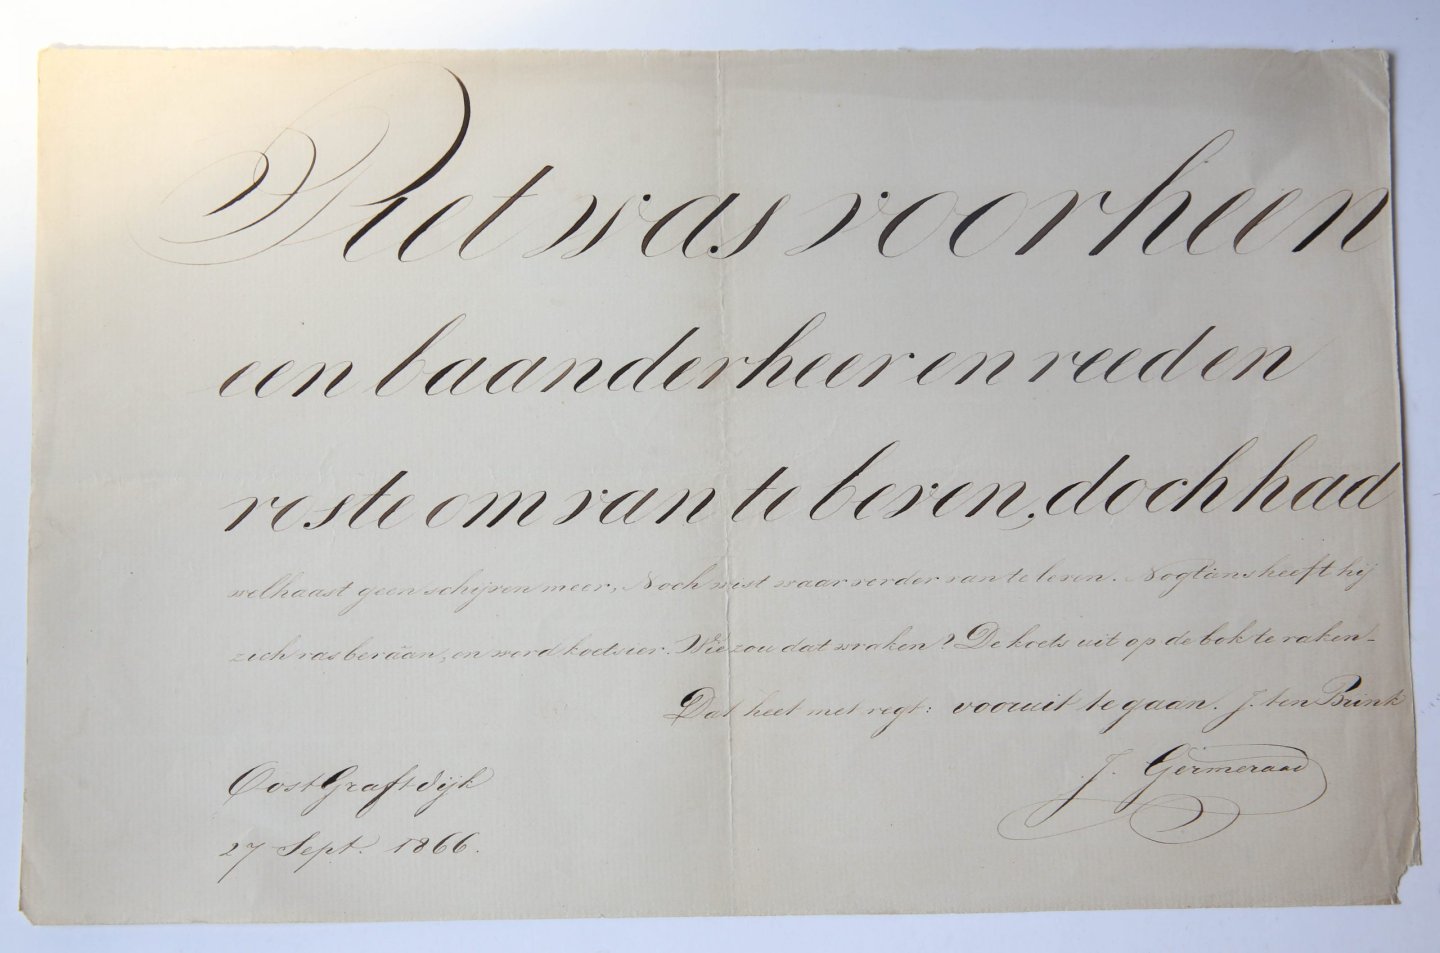 Piet was voorheen
een baanderheer en reed en
roste om van te beven, doch had
welhaast geen schijven meer, Noch wist waar verder van te leven. Nogtans heeft hij
zich ras beräan, en werd koetsier. Wie zou dat wraken? De koets uit op de bok te raken _
Dat heet met regt: vooruit te gaan. J. ten Brink
J. Germeraad
Oost Graftdijk
27 Sept. 1866.